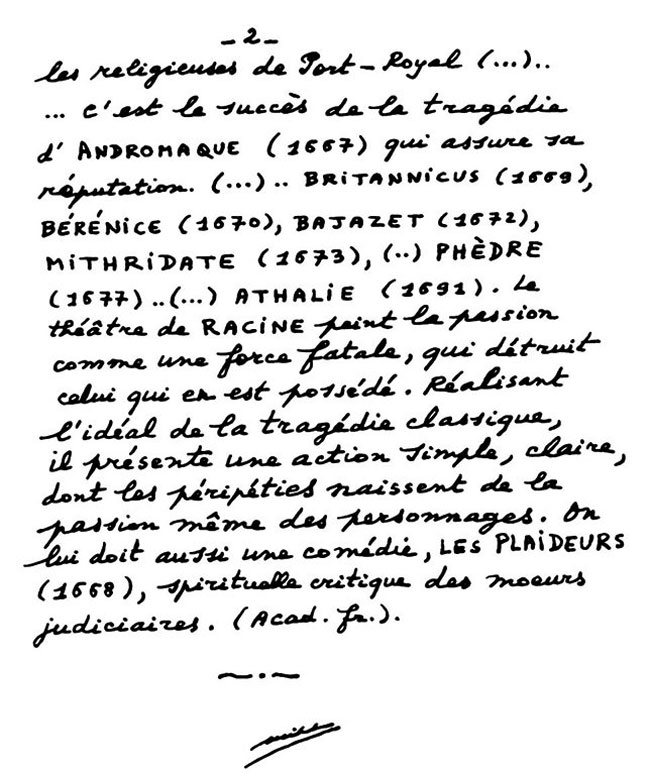 - 2 -
les religieuses de Port-Royal (...)..
... c'est le succès de la tragédie
d'ANDROMAQUE (1667) qui assure sa
réputation. (...) .. BRITANNICUS (1669),
BÉRÉNICE (1670), BAJAZET (1672),
MITHRIDATE (1673), (..) PHÈDRE
(1677)..(...) ATHALIE (1691). Le
théâtre de RACINE peint la passion
comme une force fatale, qui détruit
celui qui en est possédé. Réalisant
l'idéal de la tragédie classique,
il présente une action simple, claire,
dont les péripéties naissent de la
passion même des personnages. On
lui doit aussi une comédie, LES PLAIDEURS
(1668), spirituelle critique des moeurs
judiciaires. (Acad. fr.).